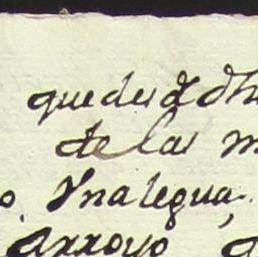 que des de dh
de las m
o. Yna legua
arroyo